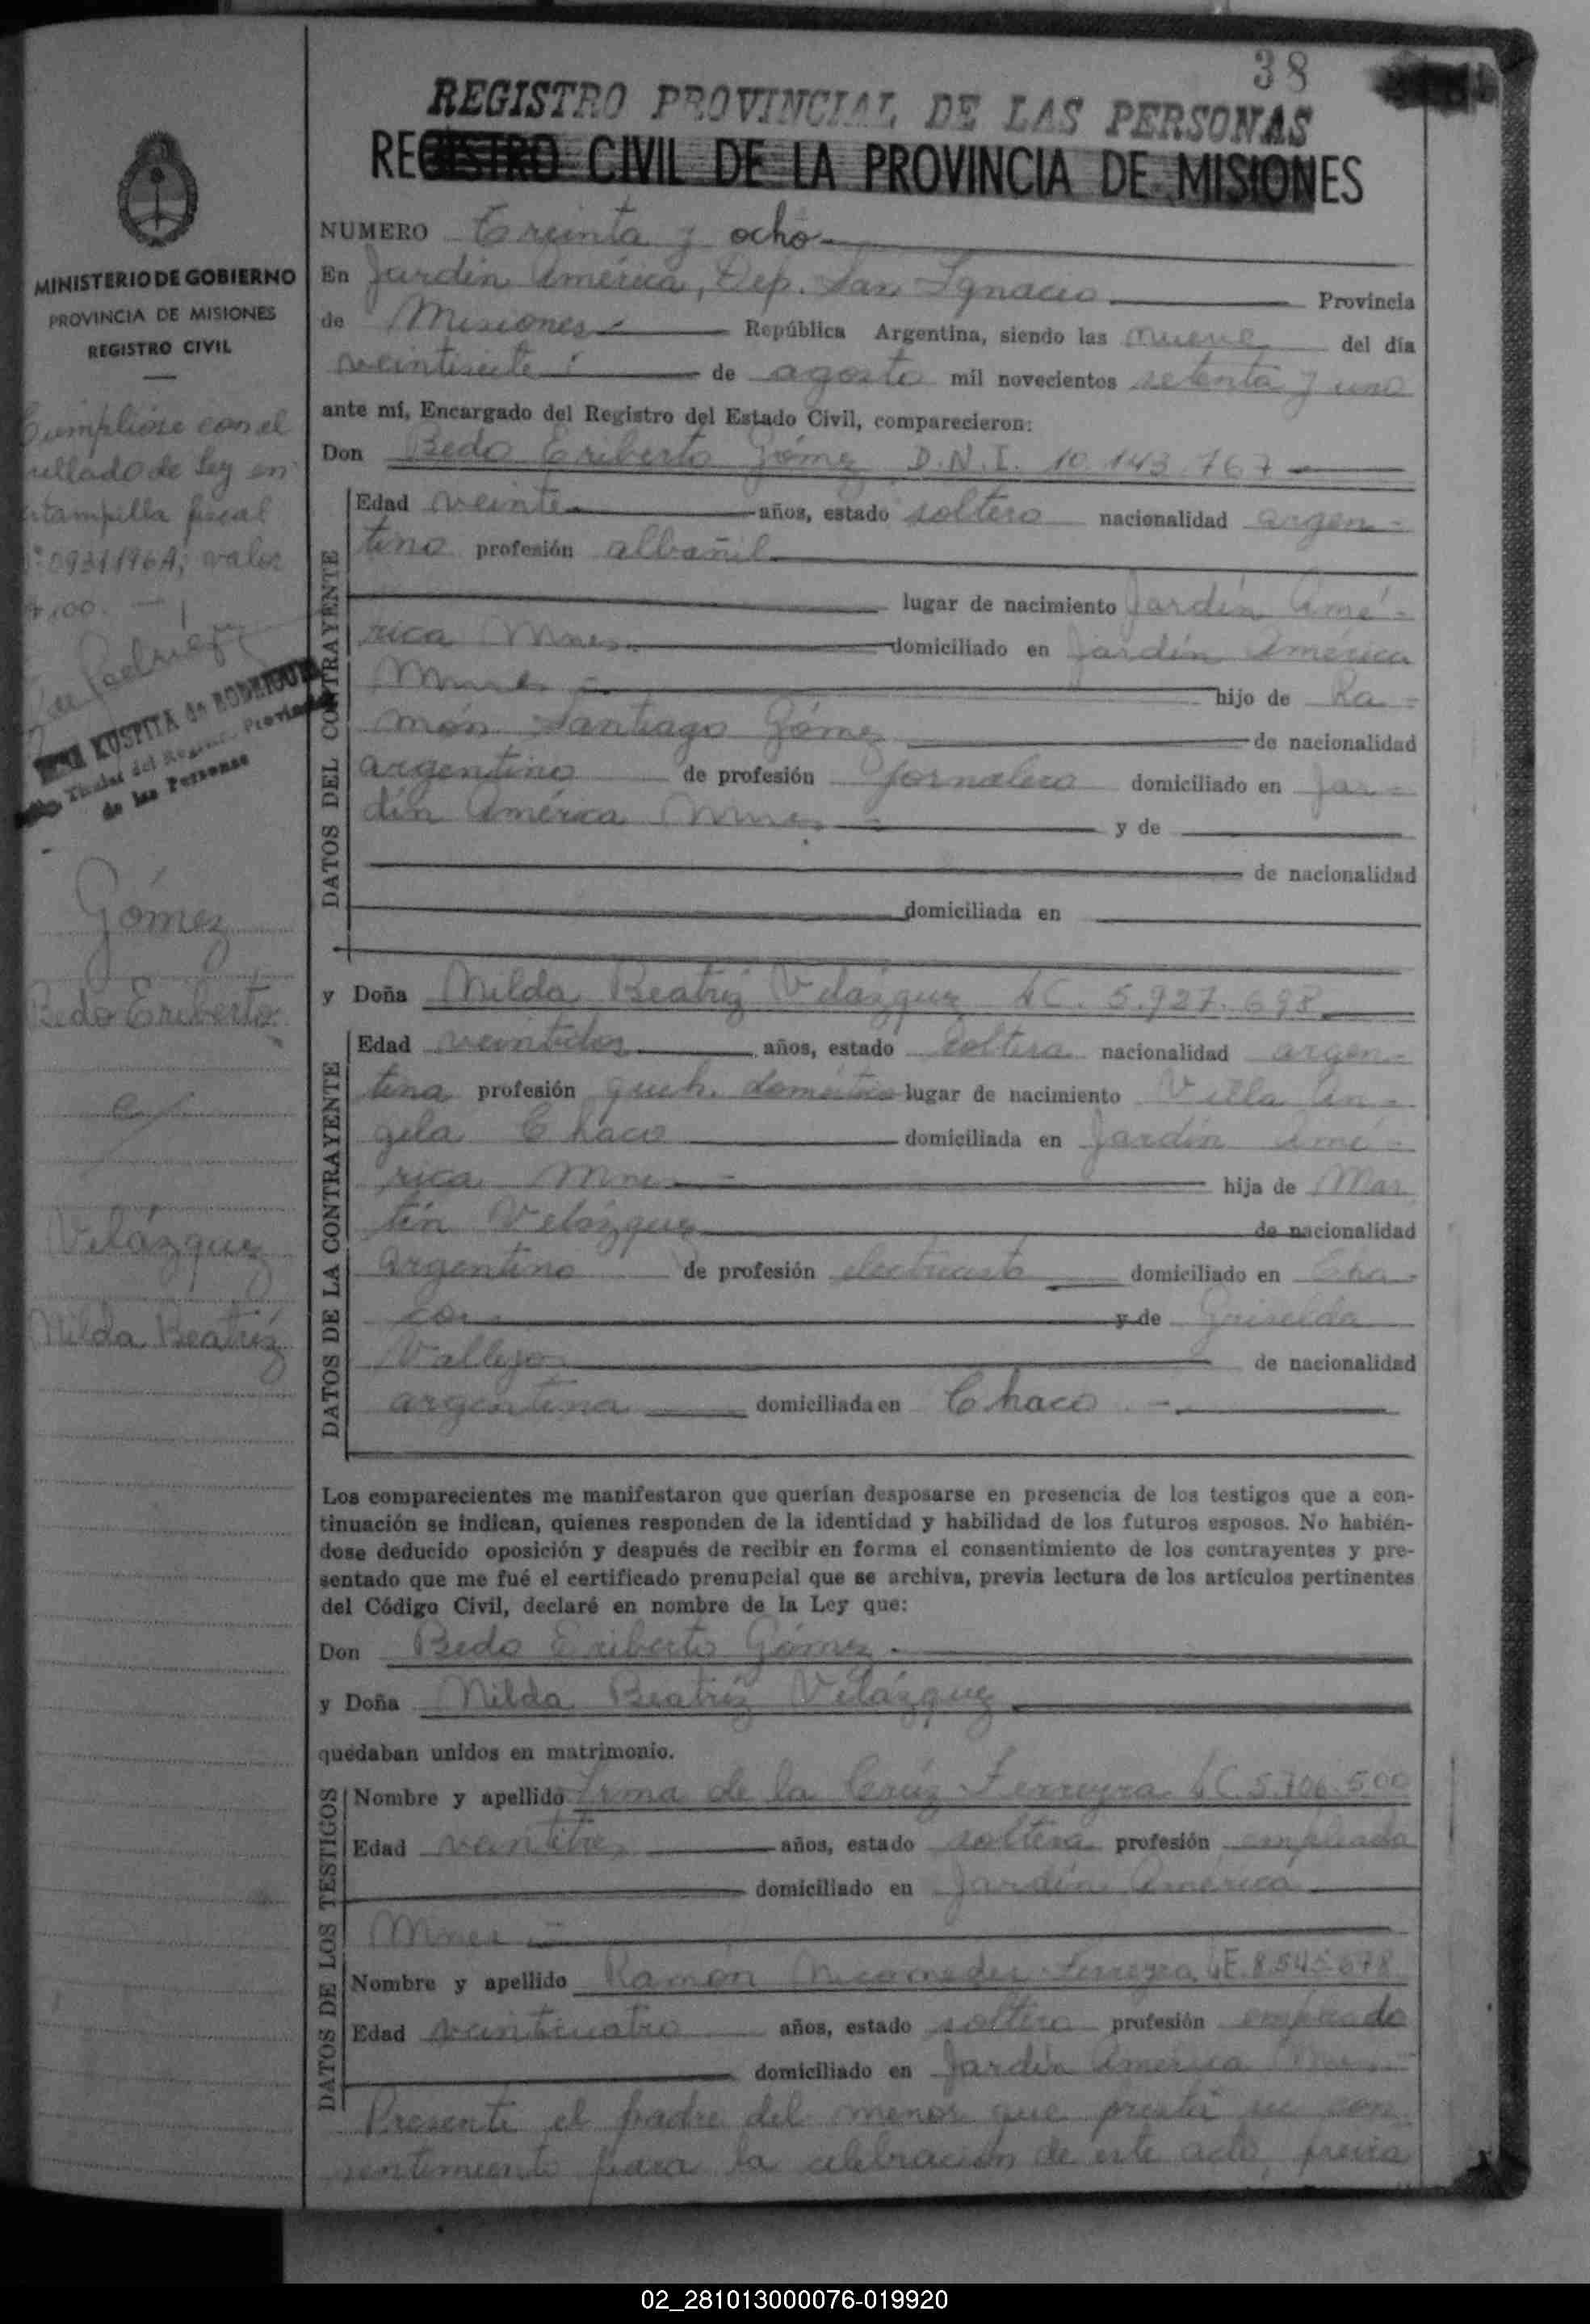 38
REGISTRO PROVINCIAL DE LAS PERSONAS
REGISTRO CIVIL DE LA PROVINCIA DE MISIONES
MINISTERIO DE GOBIERNO
PROVINCIA DE MISIONES
REGISTRO CIVIL
Cumplióse con el
sellado de Ley en
estampilla fiscal
valor
100.
KUSPITA de RODRIGUEZ
Titular del Registro Provincial
de las Personas
Gómez
Bedo Eriberto
c/
Velázquez
Nilda Beatríz
NUMERO Treinta y ocho
En Jardín América, Dep. San Ignacio Provincia
de Misiones República Argentina, siendo las nueve del día
veintisiete de agosto mil novecientos setenta y uno
ante mí, Encargado del Registro del Estado Civil, comparecieron:
Don Bedo Eriberto Gómez D.N.I. 10.143.767
DATOS DEL CONTRAYENTE
Edad veinte años, estado soltero nacionalidad argen-
tino profesión albañil
lugar de nacimiento Jardín Amé-
rica Mnes domiciliado en Jardín América
Mnes hijo de Ra-
món Santiago Gómez de nacionalidad
argentino de profesión jornalero domiciliado en Jar-
dín América Mnes y de
de nacionalidad
domiciliada en
y Doña Nilda Beatríz Velázquez LC. 5.927.698
DATOS DE LA CONTRAYENTE
Edad veintidos años, estado soltera nacionalidad argen-
tina profesión queh. domésticos lugar de nacimiento Villa An-
gela Chaco domiciliada en Jardín Amé-
rica Mnes hija de Mar
tín Velázquez de nacionalidad
argentino de profesión electricista domiciliado en Cha-
co y de Griselda
Vallejos de nacionalidad
argentina domiciliada en Chaco
Los comparecientes me manifestaron que querían desposarse en presencia de los testigos que a con-
tinuación se indican, quienes responden de la identidad y habilidad de los futuros esposos. No habién-
dose deducido oposición y después de recibir en forma el consentimiento de los contrayentes y pre-
sentado que me fué el certificado prenupcial que se archiva, previa lectura de los artículos pertinentes
del Código Civil, declaré en nombre de la Ley que:
Don Bedo Eriberto Gómez
y Doña Nilda Beatríz Velázquez
quedaban unidos en matrimonio.
DATOS DE LOS TESTIGOS
Nombre y apellido Irma de la Crúz Ferreyra LC. 5.706.500
Edad veintitres años, estado soltera profesión empleada
domiciliado en Jardín América
Mnes
Nombre y apellido Ramón Nicomedes Ferreyra LE. 8.545.678
Edad veinticuatro años, estado soltero profesión empleado
domiciliado en Jardín América Mnes
Presente el padre del menor que presta su con
sentimiento para la celebración de este acto, previa
02_281013000076-019920